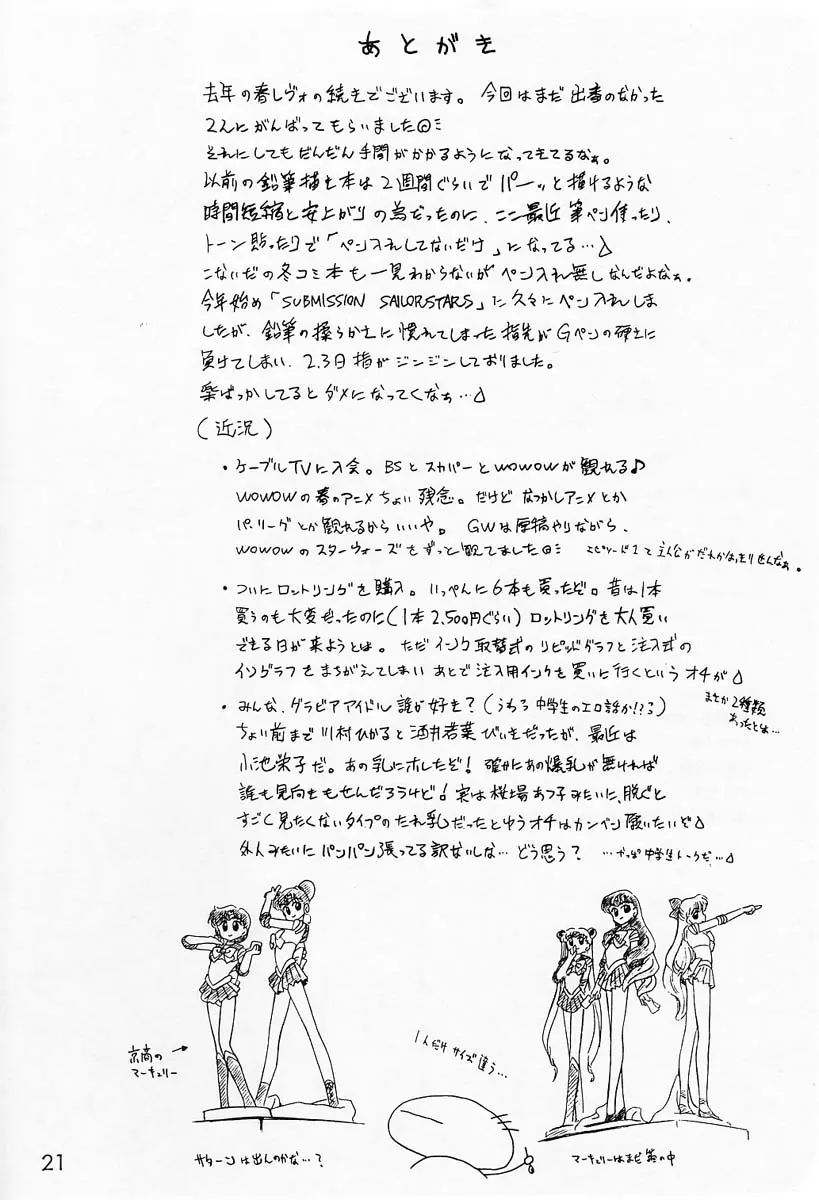 あとがき
去年の春レヴォの続きでございます。今回はまだ出番のなかった
2人にがんばってもらいました
それにしてもだんだん手間がかかるようになってきてるなぁ。
以前の鉛筆描き本は2週間ぐらいでパーッと描けるような
時間短縮と安上がりの為だったのに、ここ最近筆ペン使ったり、
トーン貼ったりで「ペン入れしてないだけ」になってる…
こないだの冬コミ本も一見わからないがペン入れ無しなんだよなぁ。
今年始め「SUBMISSION SAILORSTARS」に久々にペン入れしま
したが、鉛筆の柔らかさに慣れてしまった指先がGペンの硬さに
負けてしまい、2.3日指がジンジンしておりました。
楽ばっかしてるとダメになってくなぁ…
(近況)
・ケーブルTVに入会。BSとスカパーとWOWOWが観れる♪
WOWOWの春のアニメちょい残念。だけどなつかしアニメとか
パ・リーグとか観れるからいいや。GWは原稿やりながら、
WOWOWのスターウォーズをずっと観てました
・ついにロットリングを購入。いっぺんに6本も買ったぞ。昔は1本
買うのも大変だったのに(1本2,500円ぐらい)ロットリングを大人買い
できる日が来ようとは。ただインク取替式のラピッドグラフと注入式の
イソグラフをまちがえてしまいあとで注入用インクを買いに行くというオチが
まさか2種類
あったとは…
・みんな、グラビアアイドル誰が好き?(うわっ中学生のエロ話か!?)
ちょい前まで川村ひかると酒井若菜びいきだったが、最近は
小池栄子だ。あの乳にホレたぞ!確かにあの爆乳が無ければ
誰も見向きもせんだろうけど!実は桜場あつ子みたいに、脱ぐと
すごく見たくないタイプのたれ乳だったとゆうオチはカンベン願いたいぞ
外人みたいにパンパン張ってる訳ないしな…どう思う?
…やっぱ中学生トークだ…
京商の
マーキュリー
1人だけサイズ違う…
サターンは出んのかな…?
マーキュリーはまだ箱の中
21